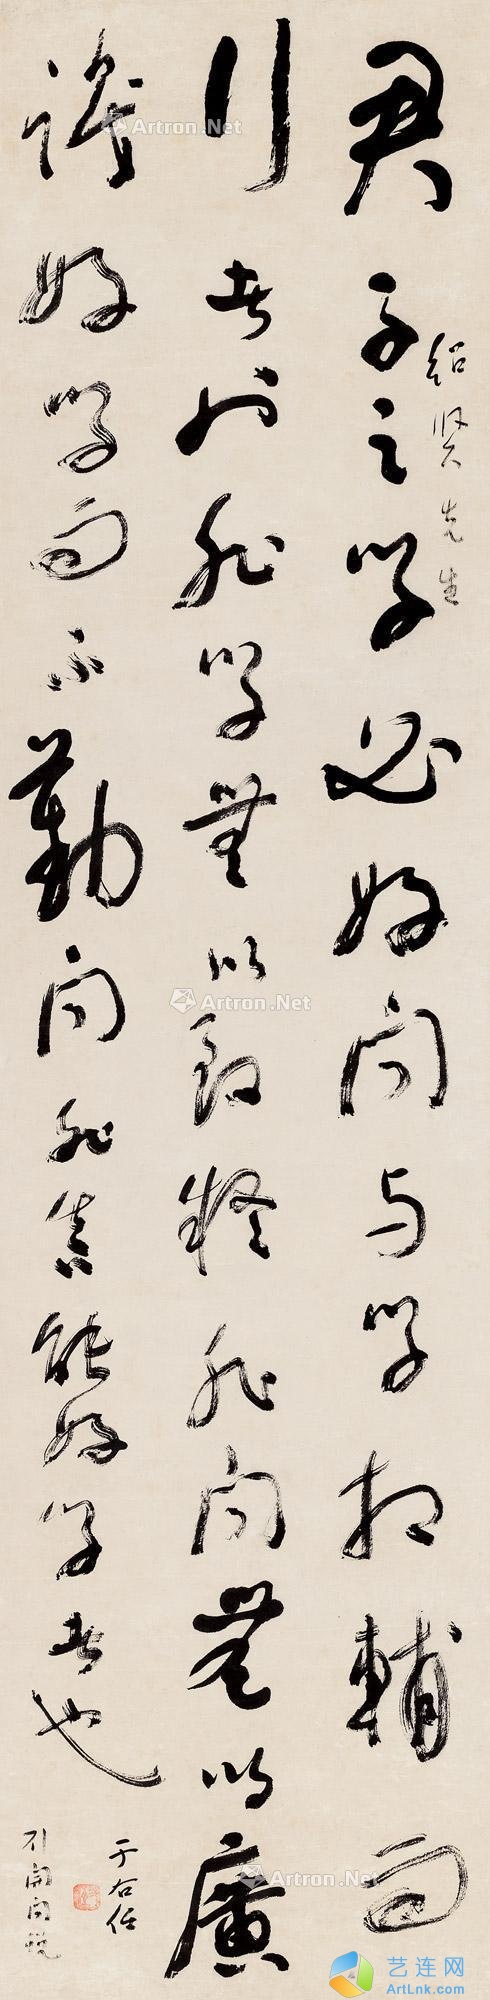 君子之学必好问问与学相辅而
行者也非学无以致疑非问无以广
识好学而不勤问非真能好学者也
绍贤先生
引开问说
于右任
Artron.Net
Artron.Net
Artron.Net
艺连网
ArtLink.com